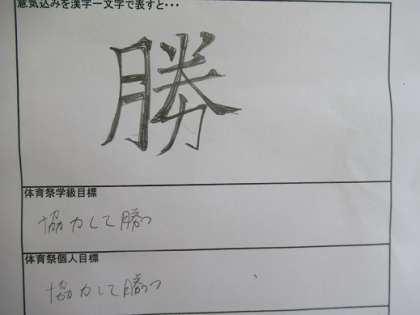 意気込みを漢字一文字で表すと・・・
勝
体育祭学級目標
協力して勝つ
体育祭個人目標
協力して勝つ